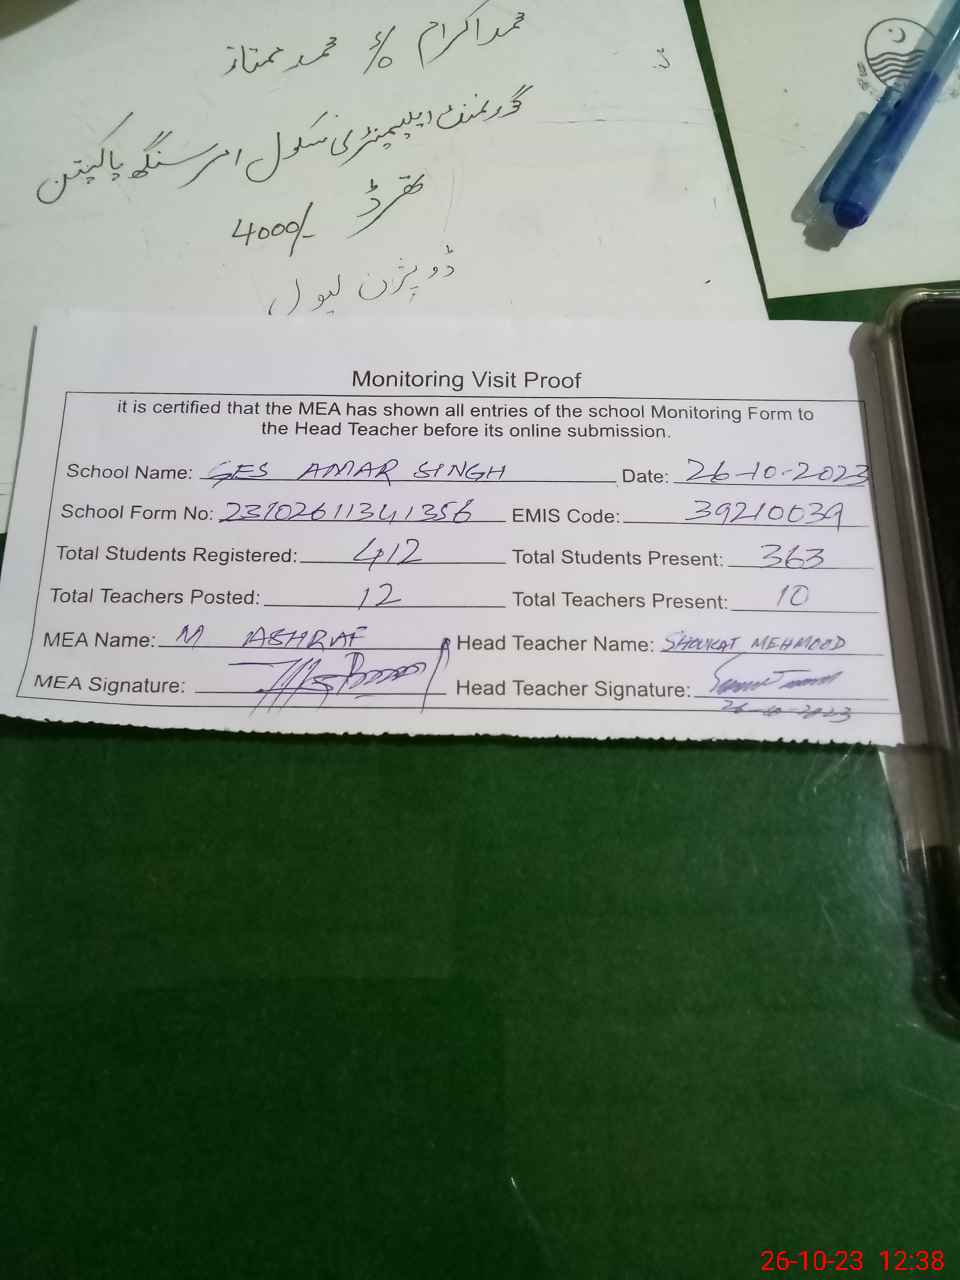 محمد اکرام s/o محمد ممتاز
گورنمنٹ ایلیمنٹری سکول امر سنگھ پاکپتن
تھرڈ 4000/-
ڈویژن لیول
Monitoring Visit Proof
it is certified that the MEA has shown all entries of the school Monitoring Form to
the Head Teacher before its online submission.
School Name: GES AMAR SINGH Date: 26-10-2023
School Form No: 23102611341356 EMIS Code: 39210039
Total Students Registered: 412 Total Students Present: 363
Total Teachers Posted: 12 Total Teachers Present: 10
MEA Name: M ASHRAF Head Teacher Name: SHOUKAT MEHMOOD
MEA Signature: Head Teacher Signature:
26-10-2023
26-10-23 12:38